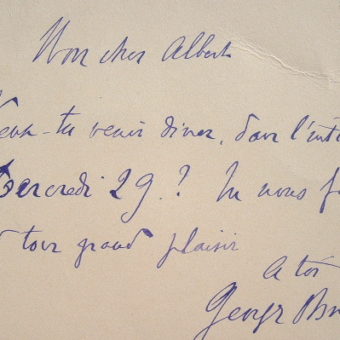 Mon cher Albert
Veux-tu venir diner, dans l'inti
Mercredi 29.? Tu nous f
tous grand plaisir
A toi
Georges